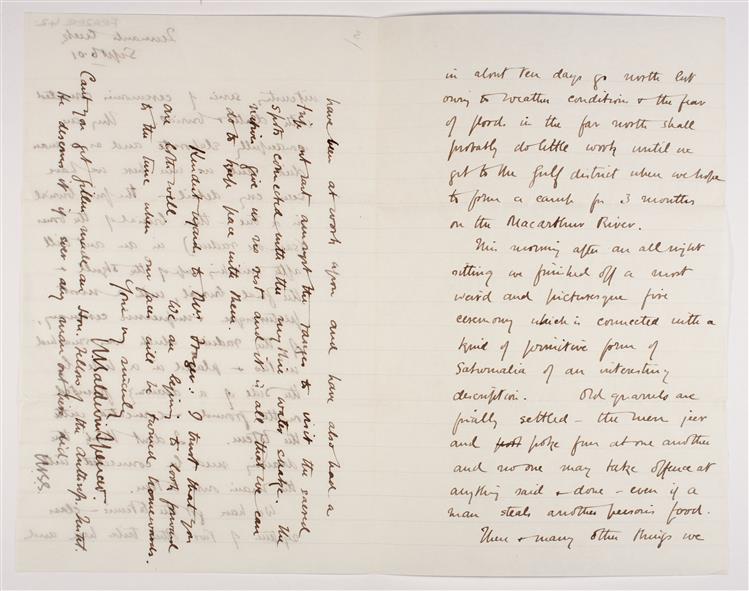 in about ten days go north but
owing to weather conditions & the fear
of floods in the far north shall
probably do little work until we
get to the Gulf district when we hope
to form a camp for 3 months
on the Macarthur River.
This morning after an all night
sitting we finished off a most
weird and picturesque fire
ceremony which is connected with a
kind of primitive form of
Saturnalia of an interesting
description. Old quarrels are
finally settled – the men jeer
and poke fun at one another
and no one may take offence at
anything said & done – even if a
man steals another person's food.
These & many other things we
have been at work upon and have also had a
trip out east amongst the ranges to visit the sacred
spots connected with the mythic water snake. The
natives give us no rest and it is all that we can
do to keep pace with them.
Kindest regards to Mrs Frazer. I trust that you
are both well. We are beginning to look forward
to the time when our faces will be turned homewards.
Yours very sincerely
W Baldwin Spencer.
Can't you get Gillen made an Hon. fellow of the Anthrop. Instit.
He deserves it if ever any man out here did
WBS.
Tennants Creek
Sept 6. 01